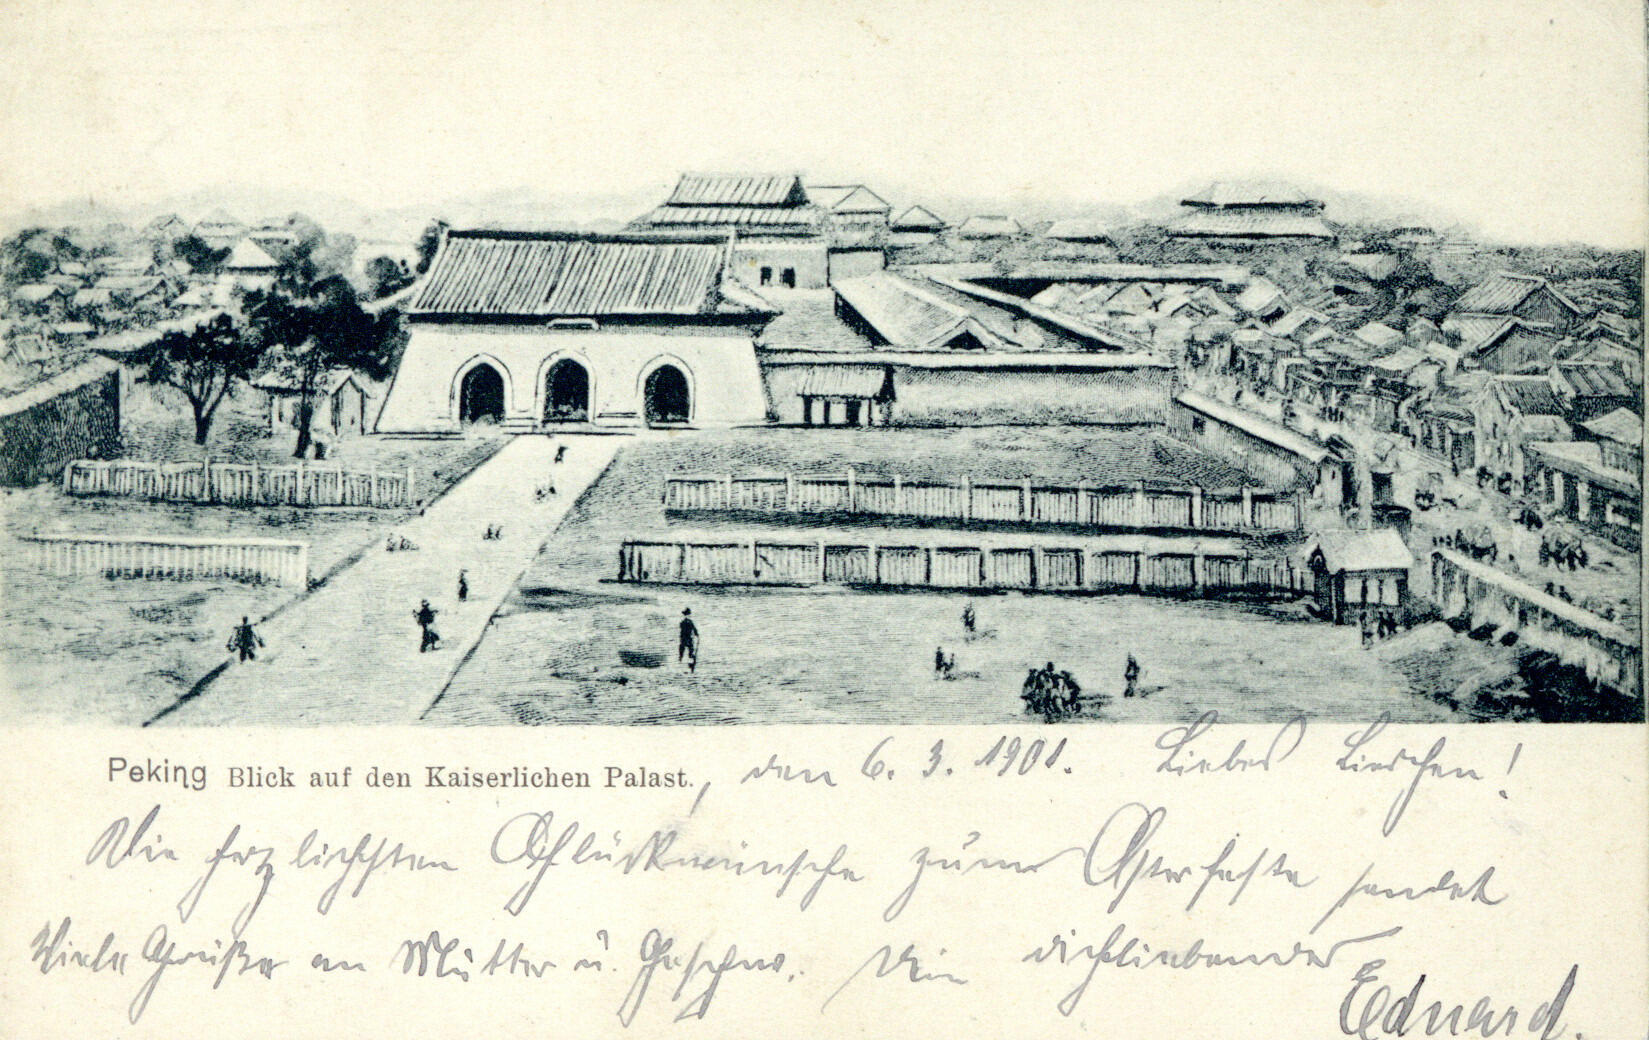 Peking Blick auf den Kaiserlichen Palast., den 6. 3. 1901. Liebes Lieschen!
Die herzlichsten Glückwünsche zum Osterfeste sendet
Viele Grüße an Mutter u. Geschw. Dein dichliebender
Eduard.